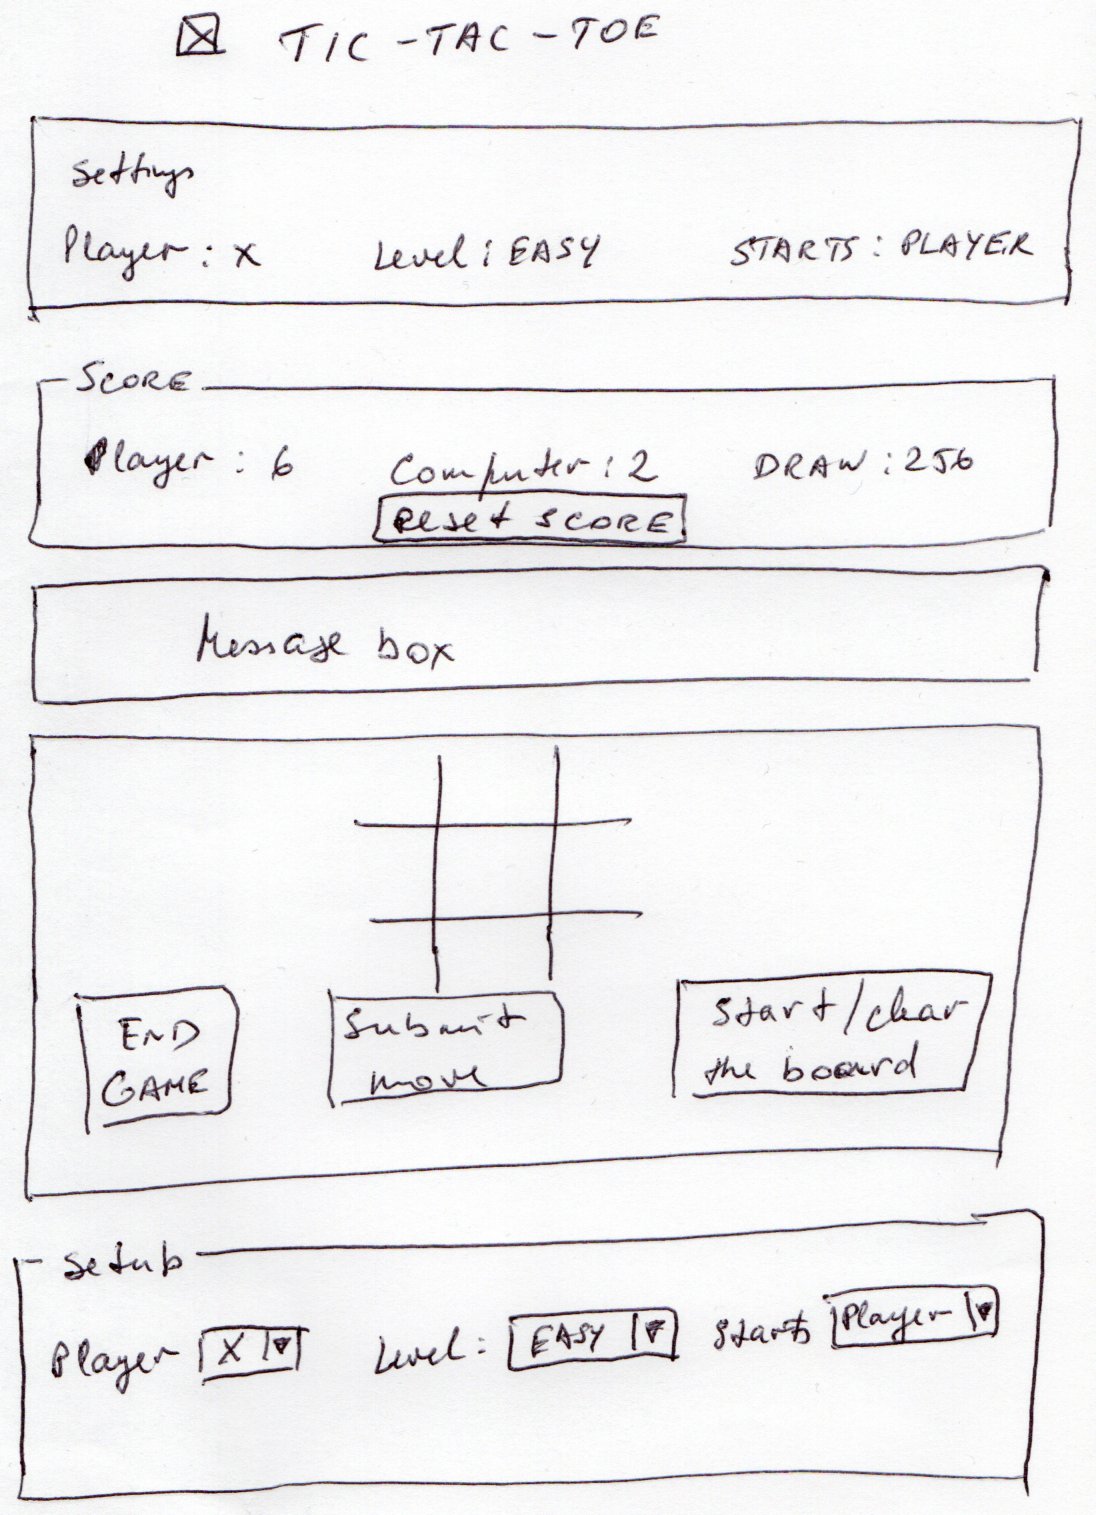 TIC-TAC-TOE
Settings
Player: X Level: EASY STARTS: PLAYER
SCORE
Player: 6 Computer: 2 DRAW: 256
Reset SCORE
Message box
END GAME
Submit move
Start/clear the board
Setub
Player X Level: EASY Starts Player